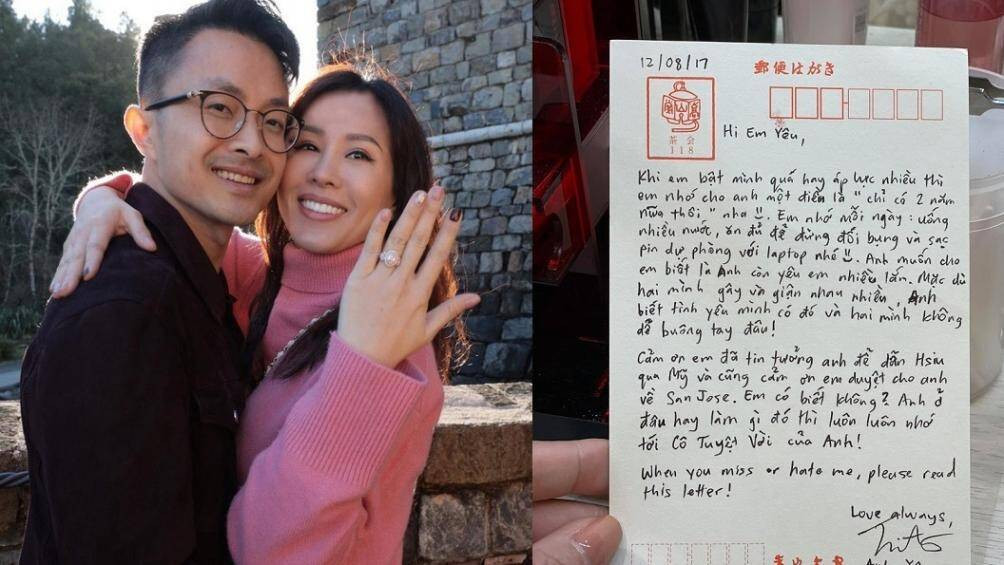 12/08/17
郵便はがき
茶会
118
Hi Em Yêu,
Khi em bật mình quá hay áp lực nhiều thì
em nhớ cho anh một điều là "chỉ có 2 năm
nữa thôi" nha !!. Em nhớ mỗi ngày: uống
nhiều nước, ăn đủ để đừng đói bụng và sạc
pin dự phòng với laptop nhé !!. Anh muốn cho
em biết là Anh còn yêu em nhiều lắm. Mặc dù
hai mình gây và giận nhau nhiều, Anh
biết tình yêu mình có đó và hai mình không
dễ buông tay đâu!
Cảm ơn em đã tin tưởng anh để dẫn Hsiu
qua Mỹ và cũng cảm ơn em duyệt cho anh
về San Jose. Em có biết không? Anh ở
đâu hay làm gì đó thì luôn luôn nhớ
tới Cô Tuyệt Vời của Anh!
When you miss or hate me, please read
this letter!
Love always,